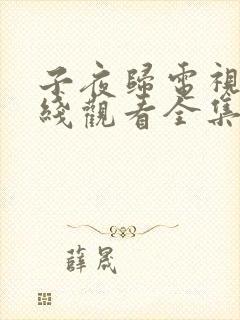 子夜歸電視
綫觀看全集
薛晟